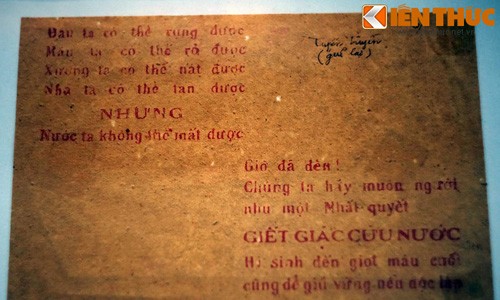 KIẾN THỨC
Đầu ta có thể rụng được
Máu ta có thể rỏ được
Xương ta có thể nát được
Nhà ta có thể tan được
NHƯNG
Nước ta không thể mất được
Giờ đã đến!
Chúng ta hãy muôn người
như một Nhất quyết
GIẾT GIẶC CỨU NƯỚC
Hi sinh đến giọt máu cuối
cùng để giữ vững nền độc lập